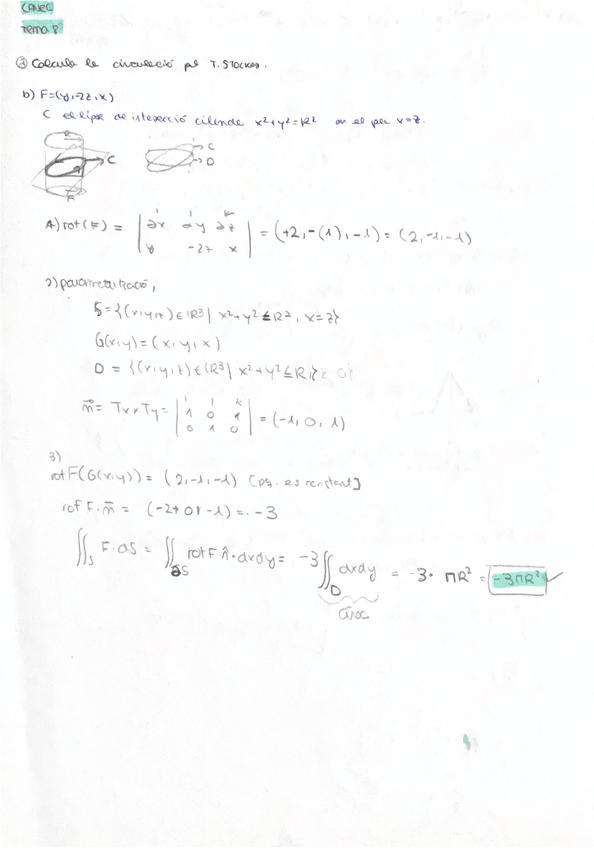 CANEC
TEMA 8
③ Calcula la circulació pel T. STOCKES.
b) F=(y,-2z,x)
C el·lipse de intersecció cilindre x²+y²=R² on el pla x=z.
C
C
D
A) rot(F) = | i j k ∂x ∂y ∂z y -2z x | = (+2,-(1),-1) = (2,-1,-1)
2) parametrització,
S = {(x,y,z) ∈ ℝ³ | x²+y² ≤ R², x=z}
G(x,y) = (x,y,x)
D = {(x,y,z) ∈ ℝ³ | x²+y² ≤ R,
n⃗ = Tx × Ty = | i j k 1 0 1 0 1 0 | = (-1,0,1)
3)
rot F(G(x,y)) = (2,-1,-1) [pq. es constant]
rot F · n⃗ = (-2+0+-1) = -3
∬S F·dS = ∬∂S rot F n̂ · dxdy = -3 ∬D dxdy = -3 · πR² = -3πR² ✓